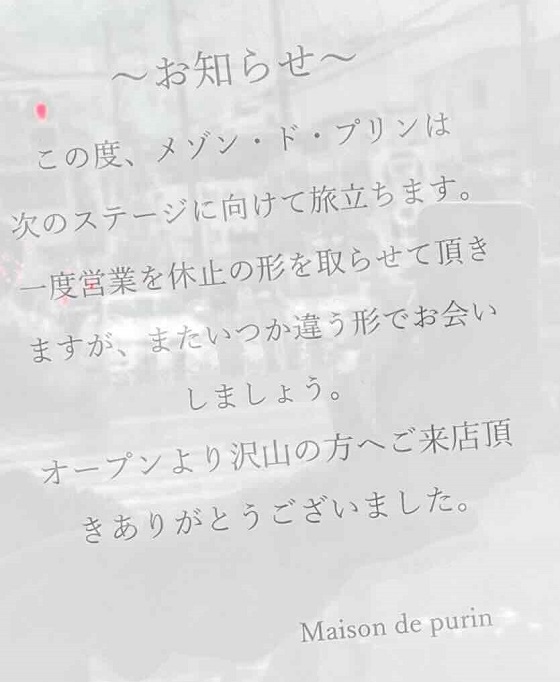 ～お知らせ～
この度、メゾン・ド・プリンは
次のステージに向けて旅立ちます。
一度営業を休止の形を取らせて頂き
ますが、またいつか違う形でお会い
しましょう。
オープンより沢山の方へご来店頂
きありがとうございました。
Maison de purin